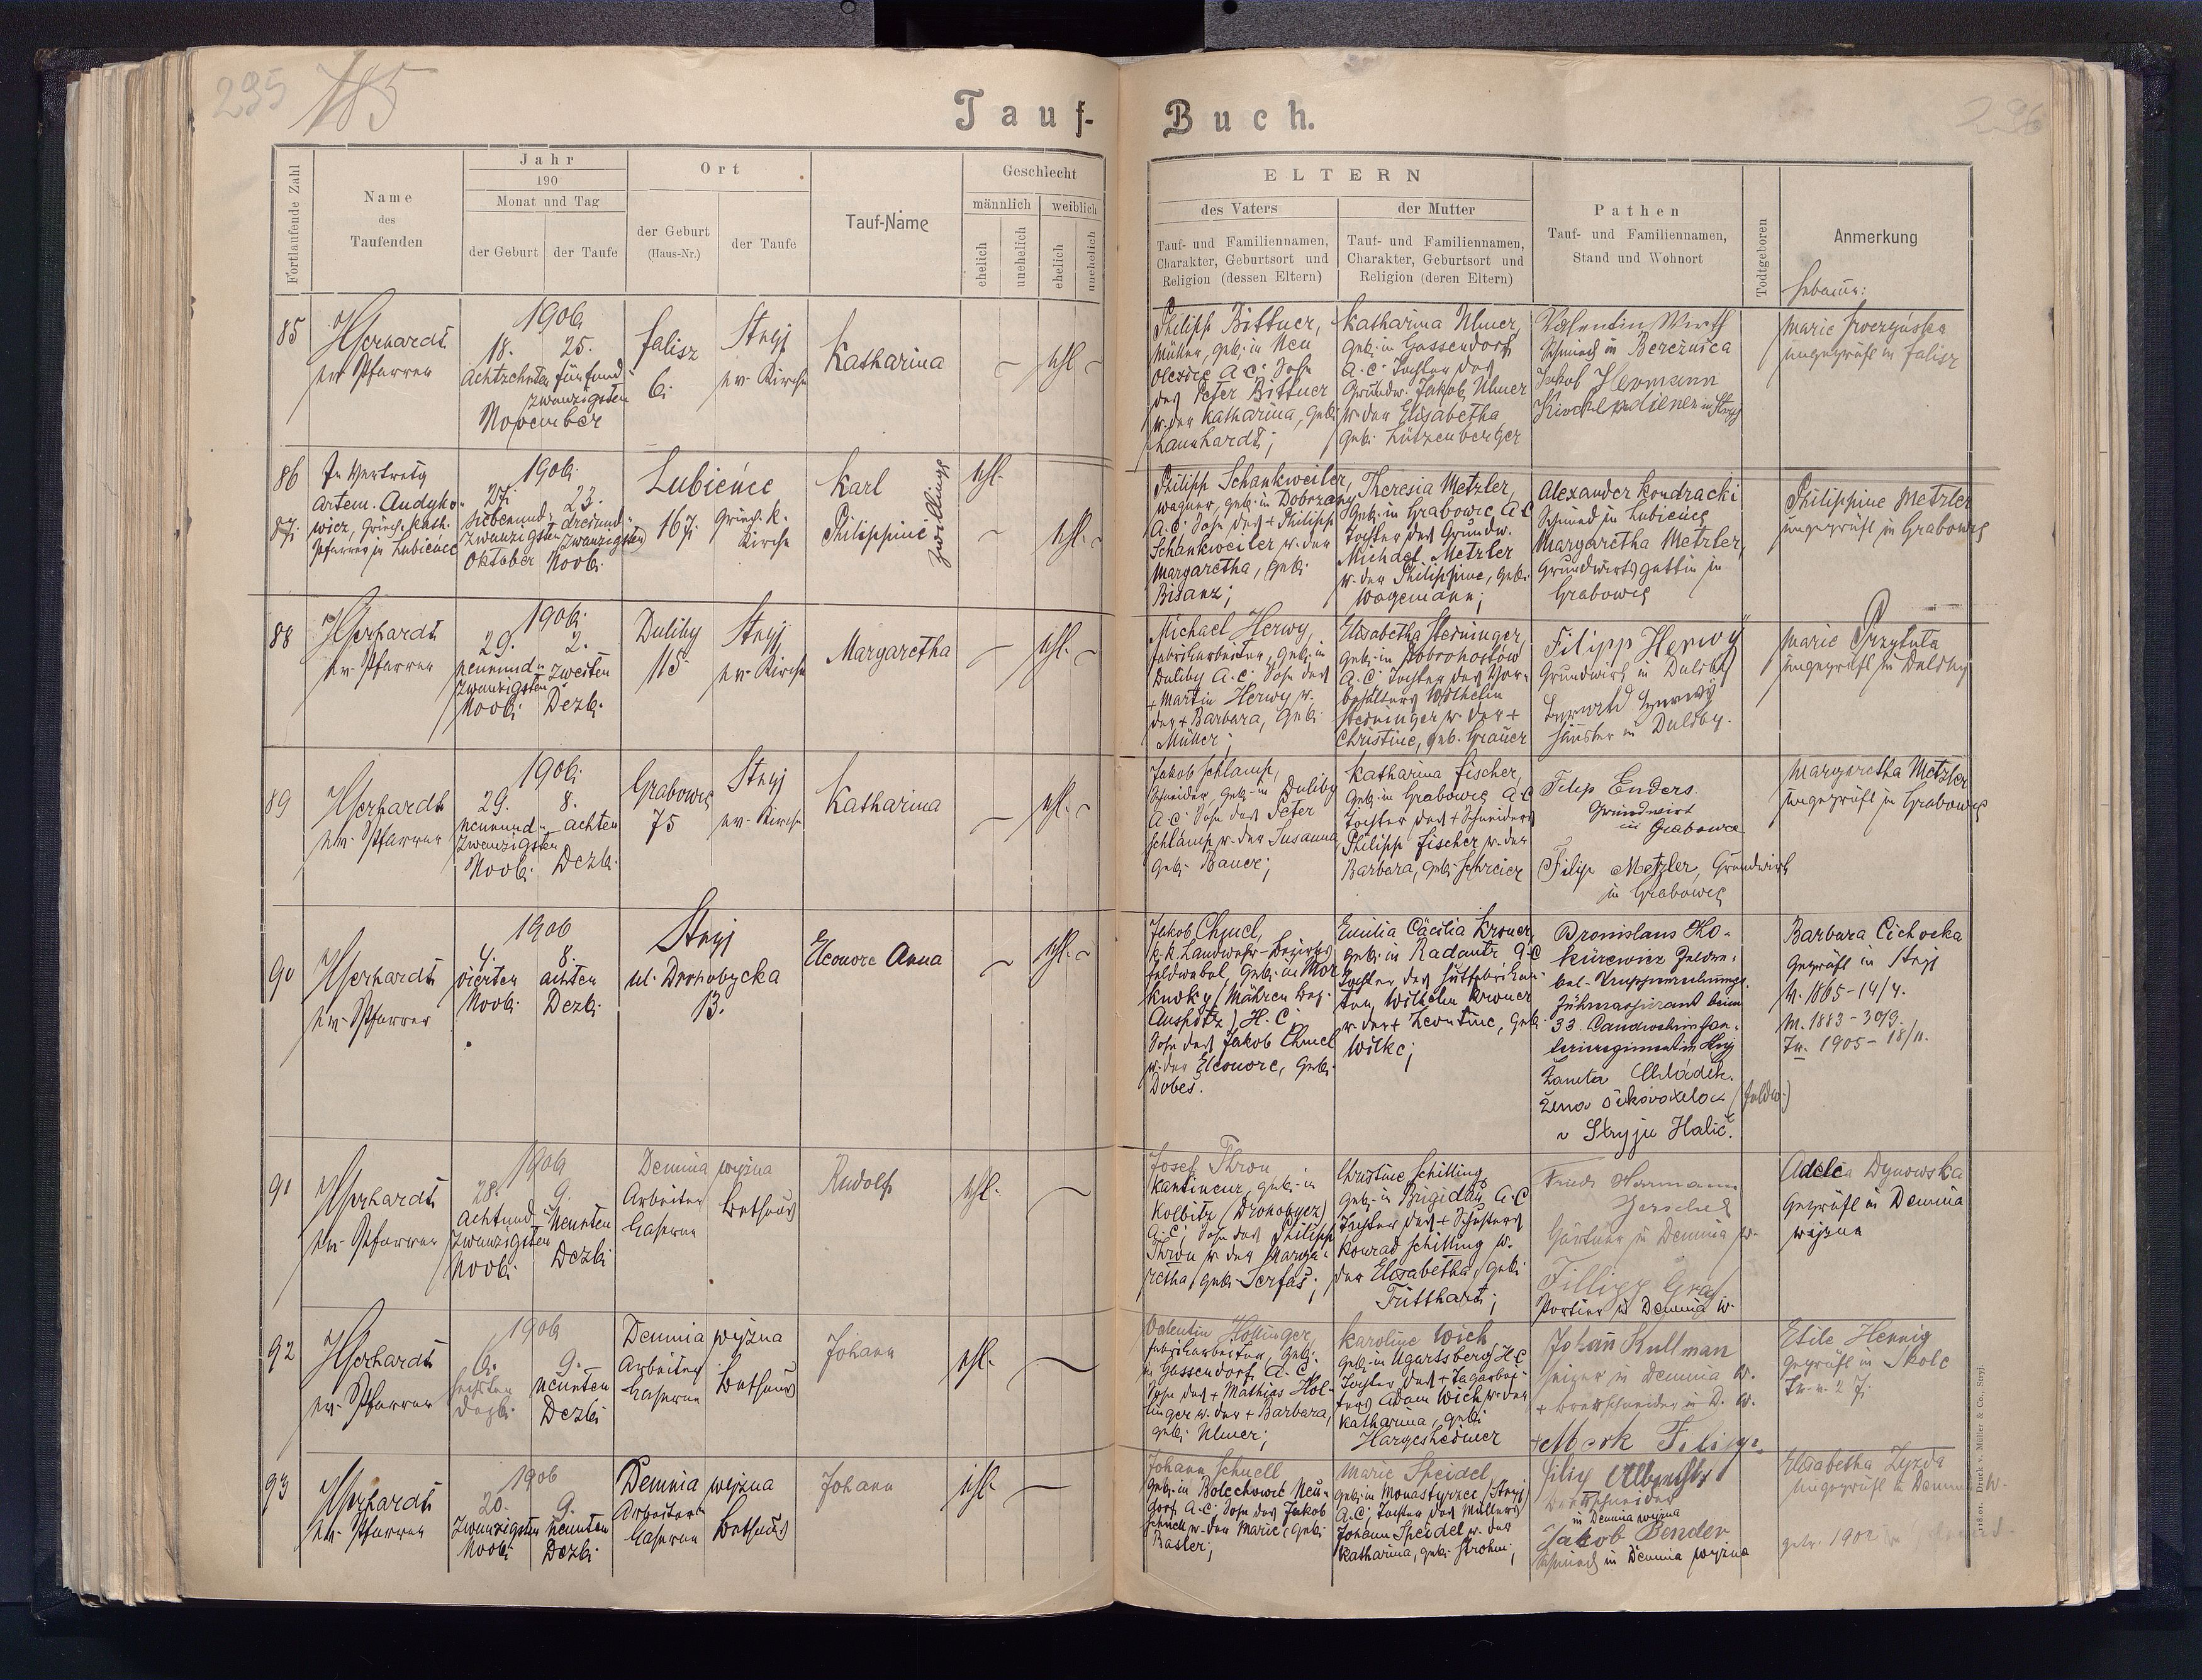 235
185
236
Tauf-Buch.
Fortlaufende Zahl
Name
des
Taufenden
Jahr
190
Monat und Tag
der Geburt
der Taufe
Ort
der Geburt
(Haus-Nr.)
der Taufe
Tauf-Name
Geschlecht
männlich
weiblich
ehelich
unehelich
ehelich
unehelich
ELTERN
des Vaters
Tauf- und Familiennamen,
Charakter, Geburtsort und
Religion (dessen Eltern)
der Mutter
Tauf- und Familiennamen,
Charakter, Geburtsort und
Religion (deren Eltern)
Pathen
Tauf- und Familiennamen,
Stand und Wohnort
Todtgeboren
Anmerkung
Hebamme:
85
ev. Pfarrer
1906
18. 25.
Achtzehnten fünfund-
zwanzigsten
November
Falisz
6.
Stryj
ev. Kirche
Katharina
ehl.
Philipp Bittner,
Müller, geb. in Neu
Olexdic A.C. Sohn
des Peter Bittner
u. der Katharina, geb.
Launhardt;
Katharina Ulmer,
geb. in Gassendorf
A.C. Tochter des
Grundw. Jakob Ulmer
u. der Elisabetha
geb. Lützenberger
Valentin Wirth
Schmied in Bereźnica
Jakob Hermann
Kirchendiener in Stryj
Marie
ungeprüft in Falisz
86
87.
In Vertretg
Artem. Andyko-
wicz, griech. kath.
Pfarrer in Lubieńce
1906.
27. 23.
Siebenund- dreiund-
zwanzigsten zwanzigsten
Oktober Novb.
Lubieńce
167.
griech. k.
Kirche
Karl
Philippine
Zwillinge
ehl.
ehl.
Philipp Schankweiler,
Wagner, geb. in Dobrzany
A.C. Sohn des + Philipp
Schankweiler u. der
Margaretha, geb.
Bisanz;
Theresia Metzler,
geb. in Grabowie A.C.
Tochter des Grundw.
Michael Metzler
u. der Philippine, geb.
Wagemann;
Alexander Kondracki
Schmied in Lubieńce
Margaretha Metzler,
Grundwirtsgattin in
Grabowie
Philippine Metzler
ungeprüft in Grabowie
88
ev. Pfarrer
1906.
29. 2.
neunund- zweiten
zwanzigsten
Novb. Dezb.
Duliby
115
Stryj
ev. Kirche
Margaretha
ehl.
Michael Herwy,
Fabriksarbeiter, geb. in
Duliby A.C. Sohn des
+ Martin Herwy u.
der + Barbara, geb.
Müller;
Elisabetha Steininger,
geb. in Dobrohostów
A.C. Tochter des Vor-
Wilhelm
Steininger u. der +
Christine, geb. Grauer
Filipp Herwy
Grundwirt in Duliby
in Duliby.
Marie Przytuła
ungeprüft in Duliby
89
ev. Pfarrer
1906.
29. 8.
neunund- achten
zwanzigsten
Novb. Dezb.
Grabowie
75
Stryj
ev. Kirche
Katharina
ehl.
Jakob Schlamp,
Schneider, geb. in Duliby
A.C. Sohn des Peter
Schlamp u. der Susanna
geb. Bauer;
Katharina Fischer,
geb. in Grabowie A.C.
Tochter des + Schneiders
Philipp Fischer u. der
Barbara, geb. Schreier
Filip Enders
Grundwirt
in Grabowce
Filip Metzler, Grundwirth
in Grabowce
Margaretha Metzler
ungeprüft in Grabowie
90
ev. Pfarrer
1906
4. 8.
vierten achten
Novb. Dezb.
Stryj
ul. Drohobycka
13.
Eleonore Anna
ehl.
Jakob Chmel,
k.k. Landwehr-Bezirks-
feldwebel, geb. in
(Mähren Bez.
Auspitz) H.C.
Sohn des Jakob Chmel
u. der Eleonore, geb.
Dobeš.
Emilia Cäcilia Kroner,
geb. in Radautz A.C.
Tochter des Hutfabrikan-
ten Wilhelm Kroner
u. der + Leontine, geb.
Wilke;
Bronislaus
33.
Žaneta Mládek.
žena šikovatela (Feldw.)
v Stryju Halič.
Barbara Cichocka
geprüft in Stryj
V. 1865 - 14/4.
M. 1883 - 30/9.
Tr. 1905 - 18/11.
91
ev. Pfarrer
1906
28. 9.
Achtund- Neunten
zwanzigsten
Novb. Dezb.
Demnia wyżna
Arbeiter
Caserne
Bethaus
Rudolf
ehl.
Josef Thron
Kantineur, geb. in
Kolbitz (Drohobycz)
A.C. Sohn des Philipp
Thron u. der Marga-
retha, geb. Serfas;
Christine Schilling
geb. in Brigidau A.C.
Tochter des + Schusters
Konrad Schilling u.
der Elisabetha, geb.
Futthardt;
Hermann
in Demnia w.
Fillipp Graf
Portier in Demnia w.
Adele Dynowska
geprüft in Demnia
wyżna
92
ev. Pfarrer
1906
6. 9.
sechsten neunten
Dezb. Dezb.
Demnia wyżna
Arbeiter
Caserne
Bethaus
Johann
ehl.
Valentin Hollinger,
Fabriksarbeiter, geb.
in Gassendorf, A.C.
Sohn des + Mathias Hol-
linger u. der + Barbara,
geb. Ulmer;
Karoline Wich
geb. in Ugartsberg H.C.
Tochter des + Tagarbei-
ters Adam Wich u. der
Katharina, geb.
Hargesheimer
Johann Kullman
Heizer in Demnia w.
+ Brettschneider in D. w.
+ Mark Filipp.
Etile Hennig
geprüft in Skole
93
ev. Pfarrer
1906
20. 9.
Zwanzigsten neunten
Novb. Dezb.
Demnia wyżna
Arbeiter
Caserne
Bethaus
Johann
ehl.
Johann Schnell
geb. in Bolechower Neu-
dorf A.C. Sohn des Jakob
Schnell u. der Marie, geb.
Basler;
Marie Speidel
geb. in Monastyrzec (Stryj)
A.C. Tochter des Müllers
Johann Speidel u. der
Katharina, geb. Strohm;
Filip Albrecht
Brettschneider
in Demnia wyżna
Jakob Bender
Schmied in Demnia wyżna
Elisabetha Zyzda
ungeprüft in Demnia w.
getr. 1902
Druck v. Müller & Co., Stryj.